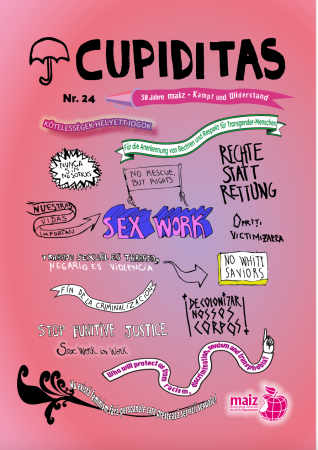 CUPIDITAS
Nr. 24
30 Jahre maiz - Kampf und Widerstand
KÖTELESSÉGEK HELYETT JOGOK
Für die Anerkennung von Rechten und Respekt für Transgender-Menschen
NUNCA
SIN
NOSOTRXS
NO RESCUE,
BUT RIGHTS
RECHTE
STATT
RETTUNG
NUESTRAS
VIDAS
IMPORTAN
SEX WORK
OPRIȚI
VICTIMIZAREA
TRABAJO SEXUAL ES TRABAJO
NEGARLO ES VIOLENCIA
NO WHITE
SAVIORS
FIN DE LA CRIMINALIZACIÓN
¡DECOLONIZAR
NOSSOS
CORPOS!
STOP PUNITIVE JUSTICE
Sex Work is Work
Who will protect us from
racism, discrimination, sexism and transphobia?
Nu există feminism fără persoanele care prestează servicii sexuale!
maiz